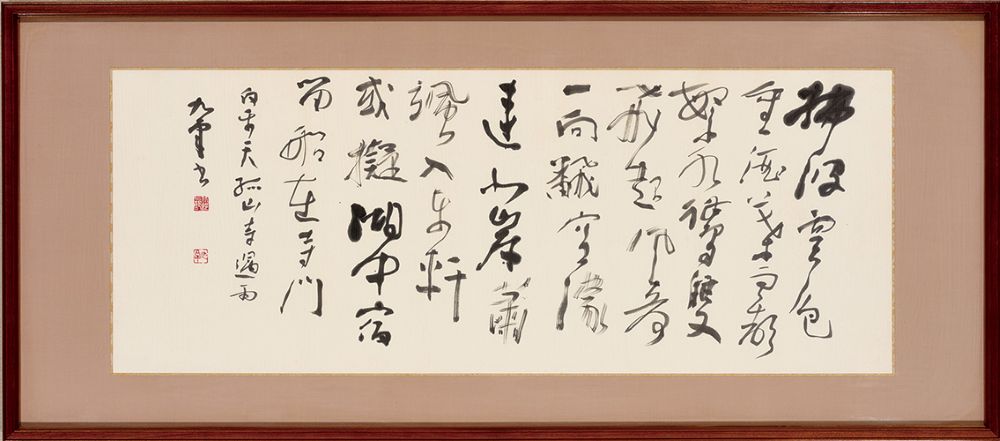 拂波雲色
重灑葉雨聲
繁水鷺雙
飛起風荷
一向飜空濛
連北岸蕭
颯入東軒
或擬湖中宿
留船在寺門
白樂天 孤山寺遇雨
九 書